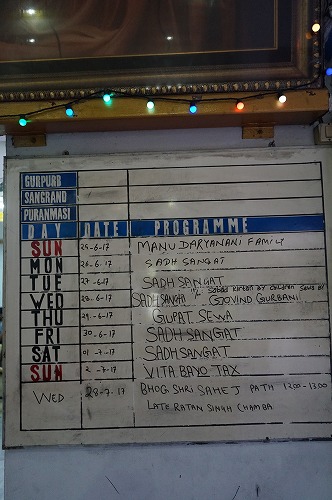 GURPURB
SANGRAND
PURANMASI
DAY DATE PROGRAMME
SUN 25-6-17 MANU DARYANANI FAMILY
MON 26-6-17 SADH SANGAT
TUE 27-6-17 SADH SANGAT
WED 28-6-17 SADH SANGAT 1/2 SABAD KIRTAN BY CHILDREN SEWA BY GOVIND GURBANI
THU 29-6-17 GUPAT SEWA
FRI 30-6-17 SADH SANGAT
SAT 01-7-17 SADH SANGAT
SUN 2-7-17 VITA BAYO TAX
WED 28-7.17 BHOG SHRI SAHEJ PATH 12.00-13.00
LATE RATAN SINGH CHAMBA